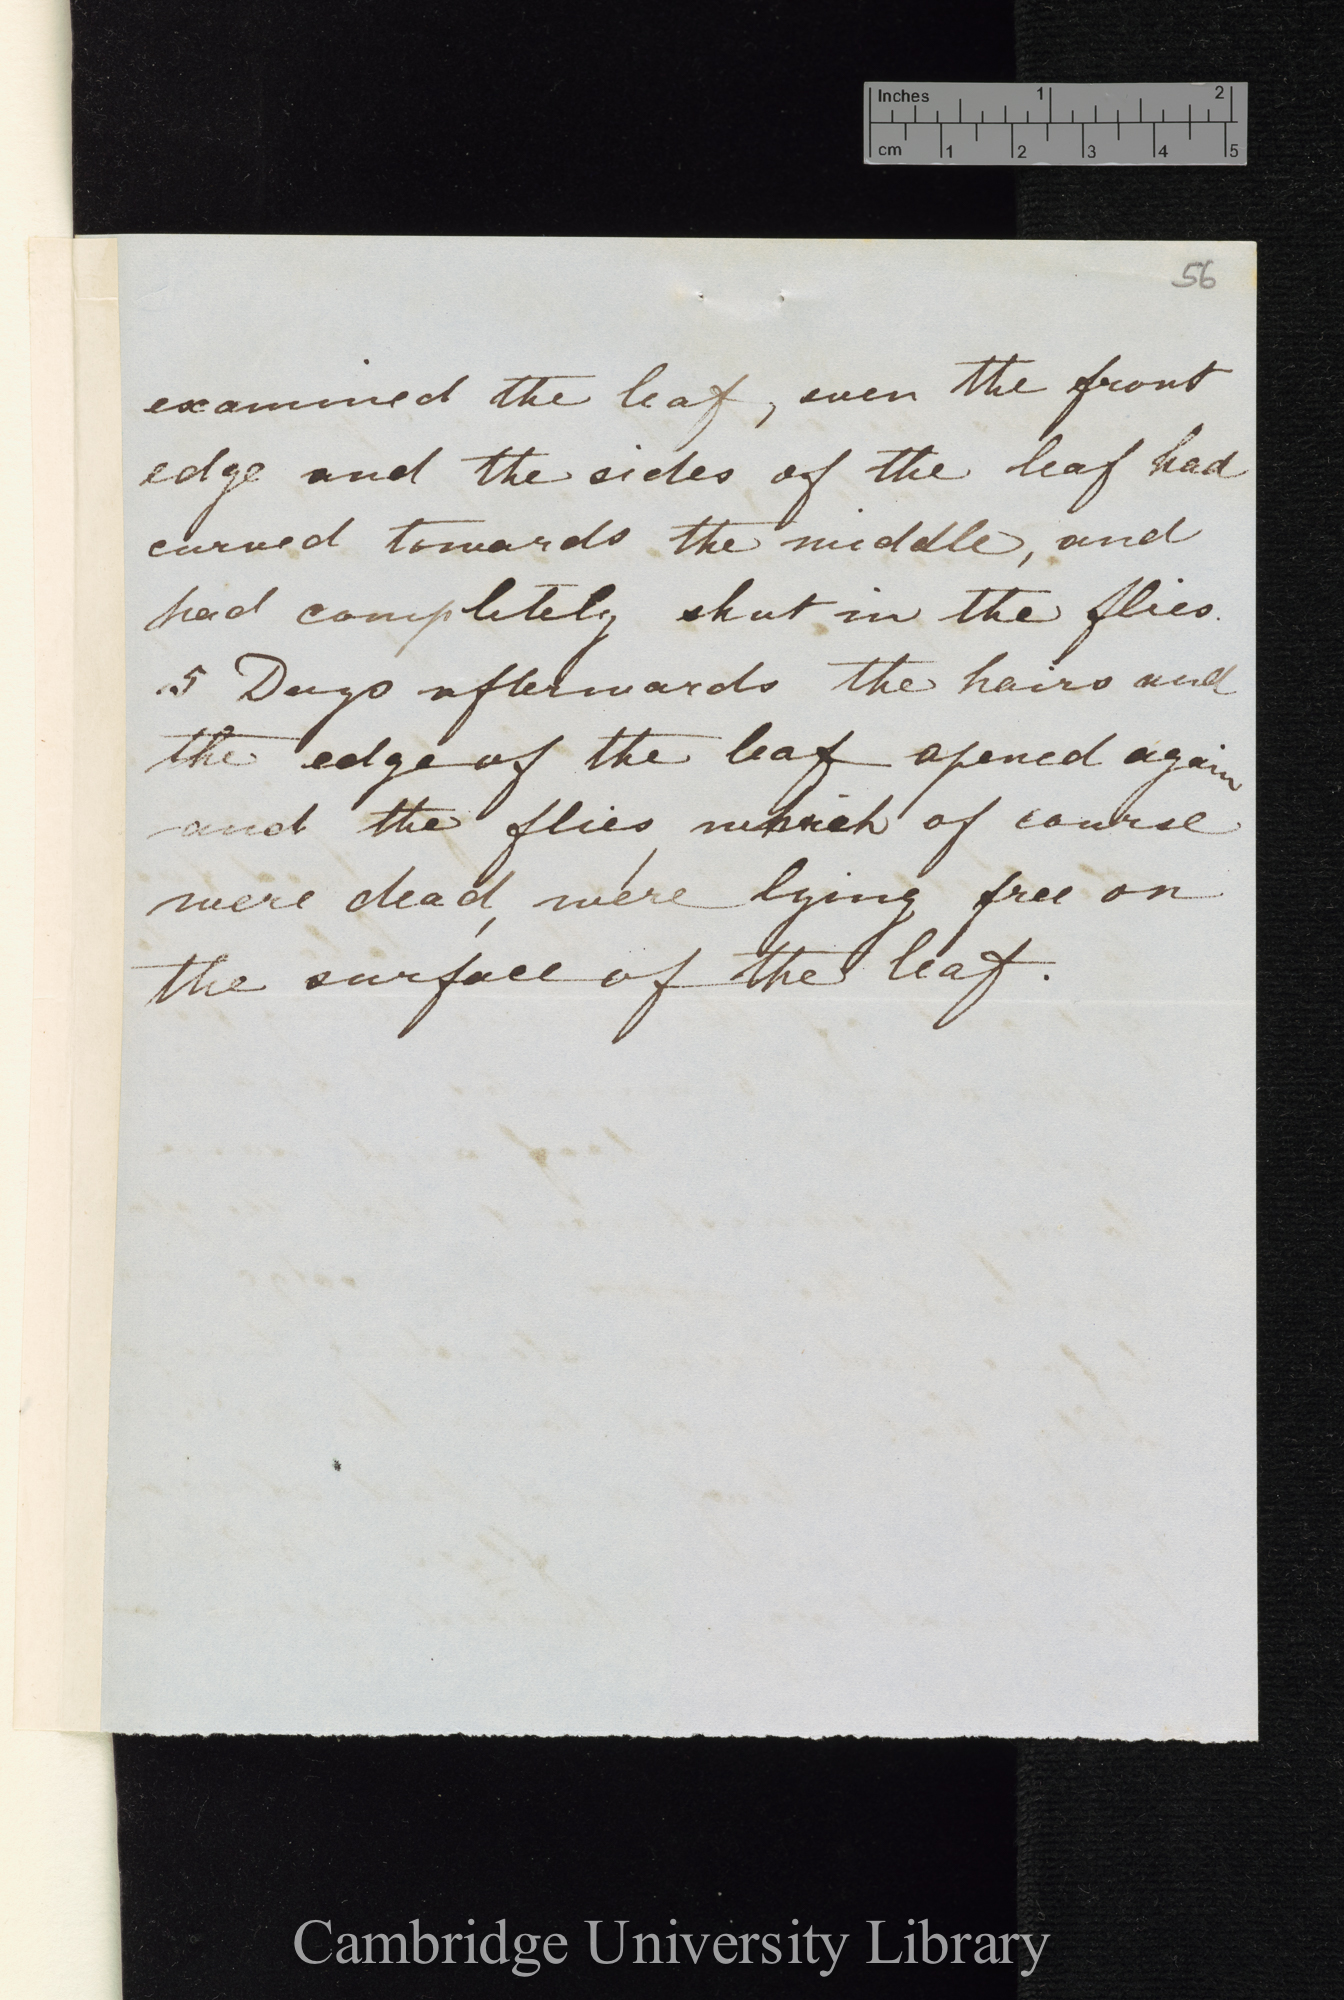 Inches 1 2
cm 1 2 3 4 5
56
examined the leaf, even the front
edge and the sides of the leaf had
curved towards the middle, and
had completely shut in the flies.
5 Days afterwards the hairs and
the edge of the leaf opened again
and the flies, which of course
were dead, were lying free on
the surface of the leaf.
Cambridge University Library